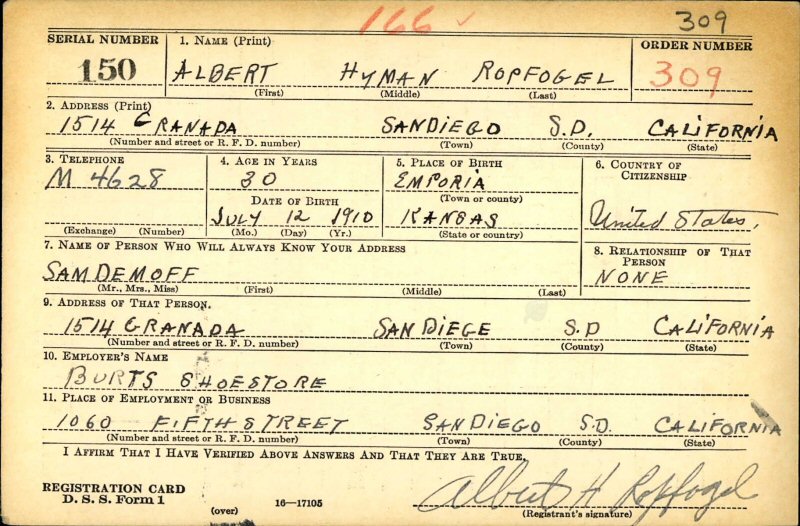 166 ✓ 309
SERIAL NUMBER 1. NAME (Print) ORDER NUMBER
150 ALBERT HYMAN ROPFOGEL 309
(First) (Middle) (Last)
2. ADDRESS (Print)
1514 GRANADA SANDIEGO S.D. CALIFORNIA
(Number and street or R. F. D. number) (Town) (County) (State)
3. TELEPHONE 4. AGE IN YEARS 5. PLACE OF BIRTH 6. COUNTRY OF CITIZENSHIP
M 4628 30 EMPORIA
DATE OF BIRTH (Town or county)
JULY 12 1910 KANSAS United States,
(Exchange) (Number) (Mo.) (Day) (Yr.) (State or country)
7. NAME OF PERSON WHO WILL ALWAYS KNOW YOUR ADDRESS 8. RELATIONSHIP OF THAT PERSON
SAM DEMOFF NONE
(Mr., Mrs., Miss) (First) (Middle) (Last)
9. ADDRESS OF THAT PERSON.
1514 GRANADA SAN DIEGE S.D CALIFORNIA
(Number and street or R. F. D. number) (Town) (County) (State)
10. EMPLOYER'S NAME
BURTS SHOESTORE
11. PLACE OF EMPLOYMENT OR BUSINESS
1060 FIFTH STREET SAN DIEGO S.D. CALIFORNIA
(Number and street or R. F. D. number) (Town) (County) (State)
I AFFIRM THAT I HAVE VERIFIED ABOVE ANSWERS AND THAT THEY ARE TRUE.
REGISTRATION CARD
D. S. S. Form 1 (over) 16—17105 Albert H Ropfogel
(Registrant's signature)